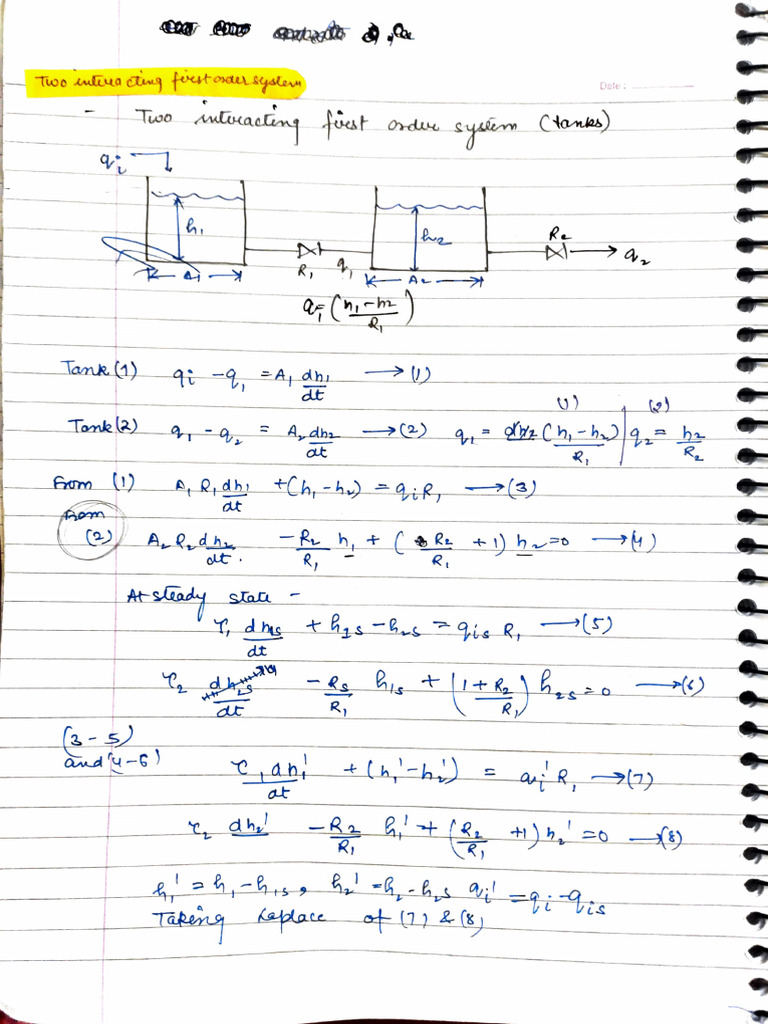 Two interacting first order system
Date :
- Two interacting first order system (tanks)
qi
h1
h2
R1
q1
R2
q2
A1
A2
q1 = (h1 - h2 / R1)
Tank (1) qi - q1 = A1 dh1/dt → (1)
(1) (2)
Tank (2) q1 - q2 = A2 dh2/dt → (2) q1 = (h1 - h2)/R1 | q2 = h2/R2
From (1) A1 R1 dh1/dt + (h1 - h2) = qi R1 → (3)
From (2) A2 R2 dh2/dt. - R2/R1 h1 + (R2/R1 + 1) h2 = 0 → (4)
At steady state -
τ1 dh1s/dt + h1s - h2s = qis R1 → (5)
τ2 dh2s/dt - Rs/R1 h1s + (1 + R2/R1) h2s = 0 → (6)
(3 - 5)
and (4 - 6) τ1 dh1'/dt + (h1' - h2') = qi' R1 → (7)
τ2 dh2' - R2/R1 h1' + (R2/R1 + 1) h2' = 0 → (8)
h1' = h1 - h1s, h2' = h2 - h2s qi' = qi - qis
Taking Laplace of (7) & (8)